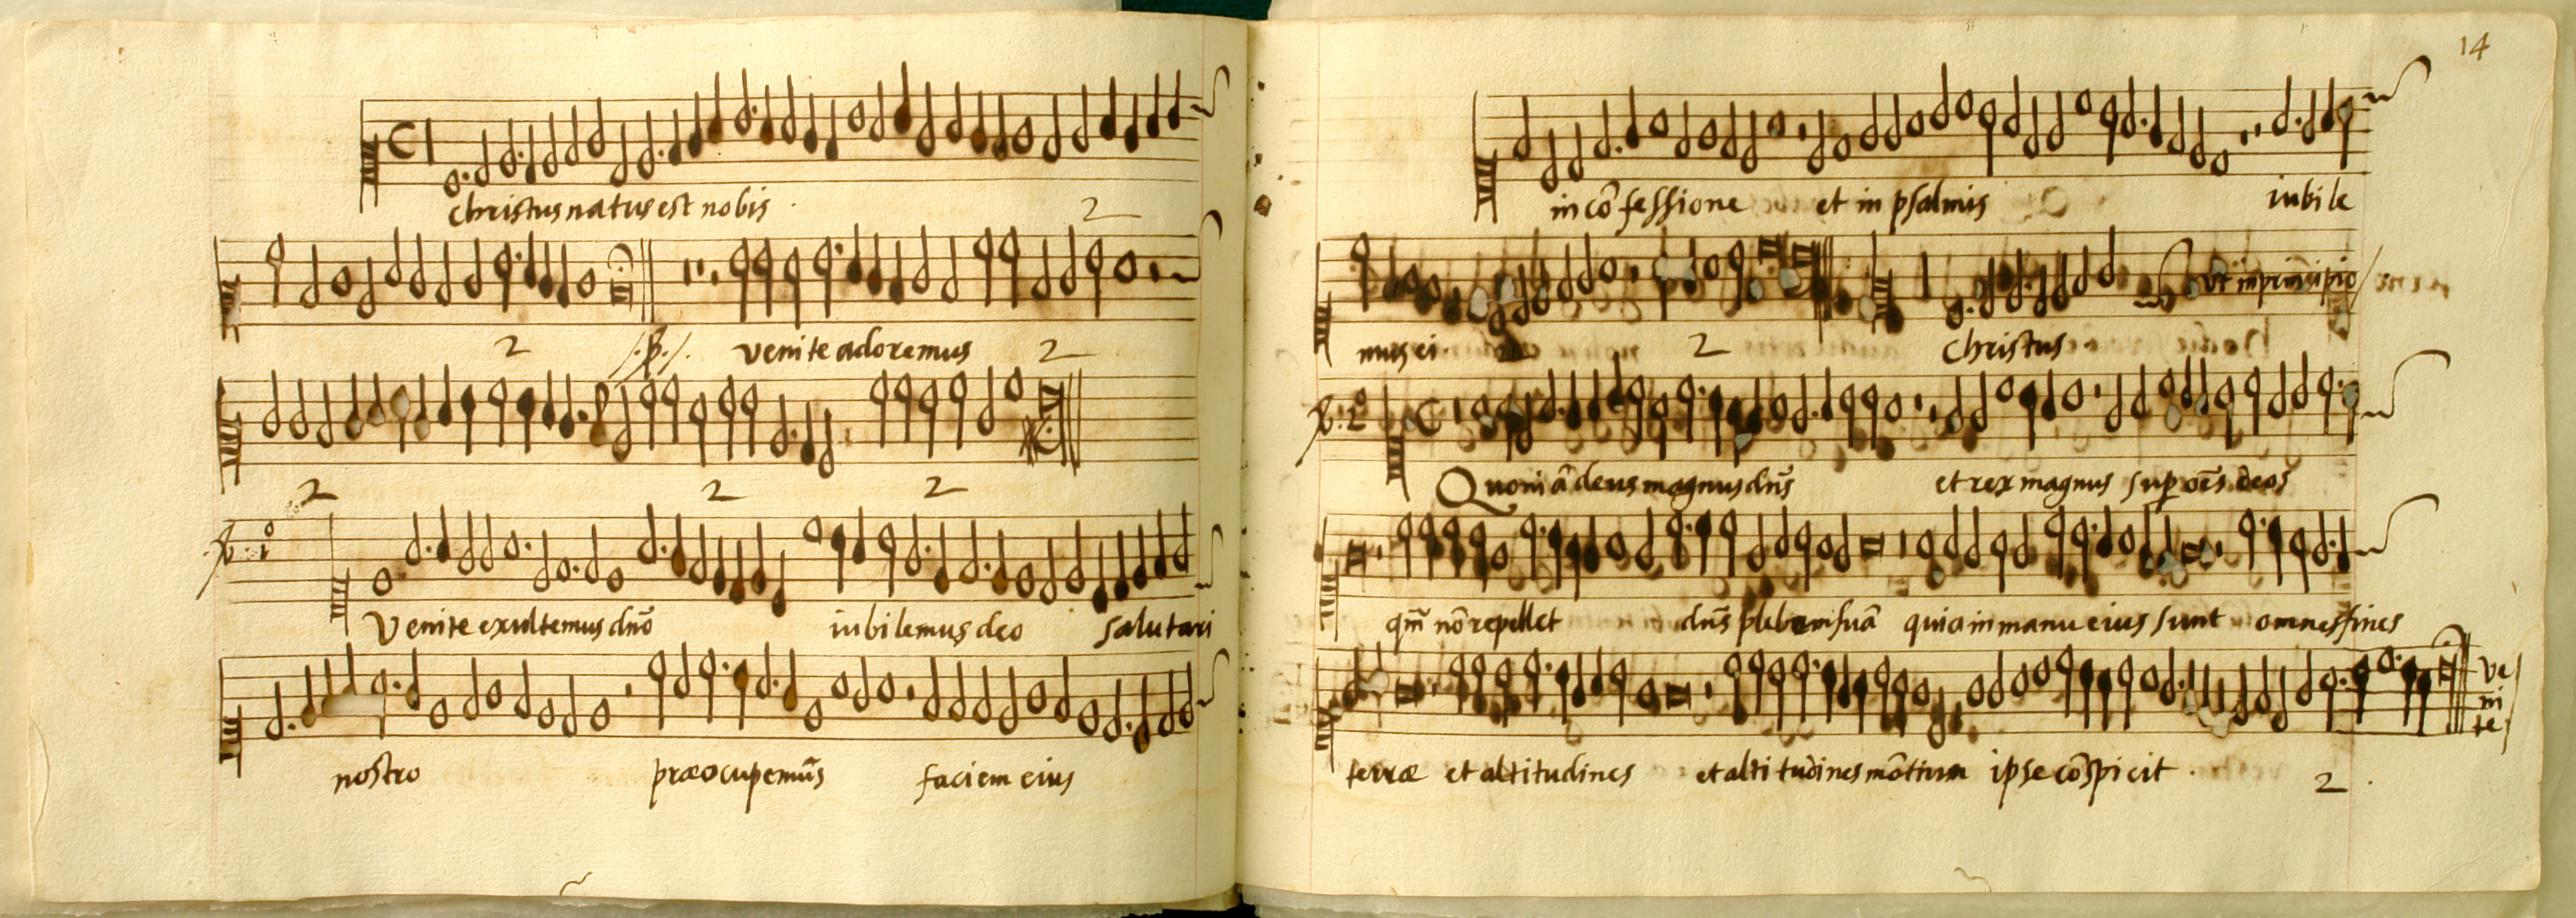 christus natus est nobis
2
2 /.p./. venite adoremus 2
2 2 2
Venite exultemus dn̄o iubilemus deo salutari
nostro præocupemus̄ faciem eius
14
in cōfessione et in psalmis iubile
ut in principio
mus ei 2 christus
Quoniā deus magnus dn̄s et rex magnus sup oēs deos
qm̄ nō repellet dn̄s plebem suā quia in manu eius sunt omnes fines
ve
ni
te
terræ et altitudines et alti tudines mōtium ipse cōspicit .
2 .